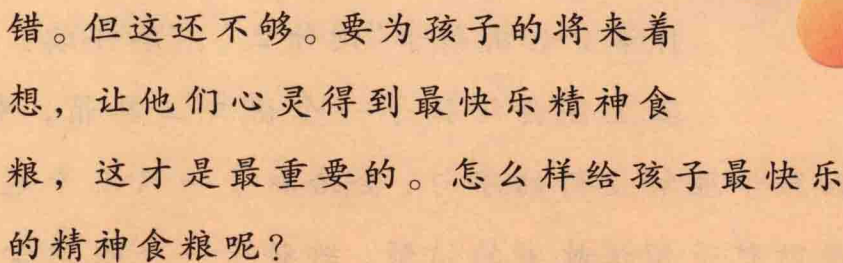 错。但这还不够。要为孩子的将来着
想，让他们心灵得到最快乐精神食
粮，这才是最重要的。怎么样给孩子最快乐
的精神食粮呢？